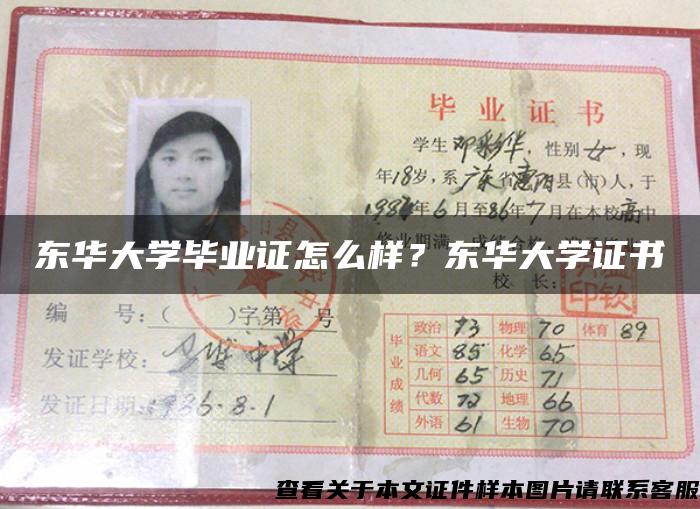 毕业证书
学生 邓彩华, 性别 女, 现
年18岁, 系 广东省惠阳县(市)人, 于
1984年6月至86年7月在本校高中
东华大学毕业证怎么样？东华大学证书
校 长:
编 号:( )字第 号
发证学校:
中学
发证日期: 1986.8.1
毕业成绩
政治 73 物理 70 体育 89
语文 85 化学 65
几何 65 历史 71
代数 72 地理 66
外语 61 生物 70
查看关于本文证件样本图片请联系客服